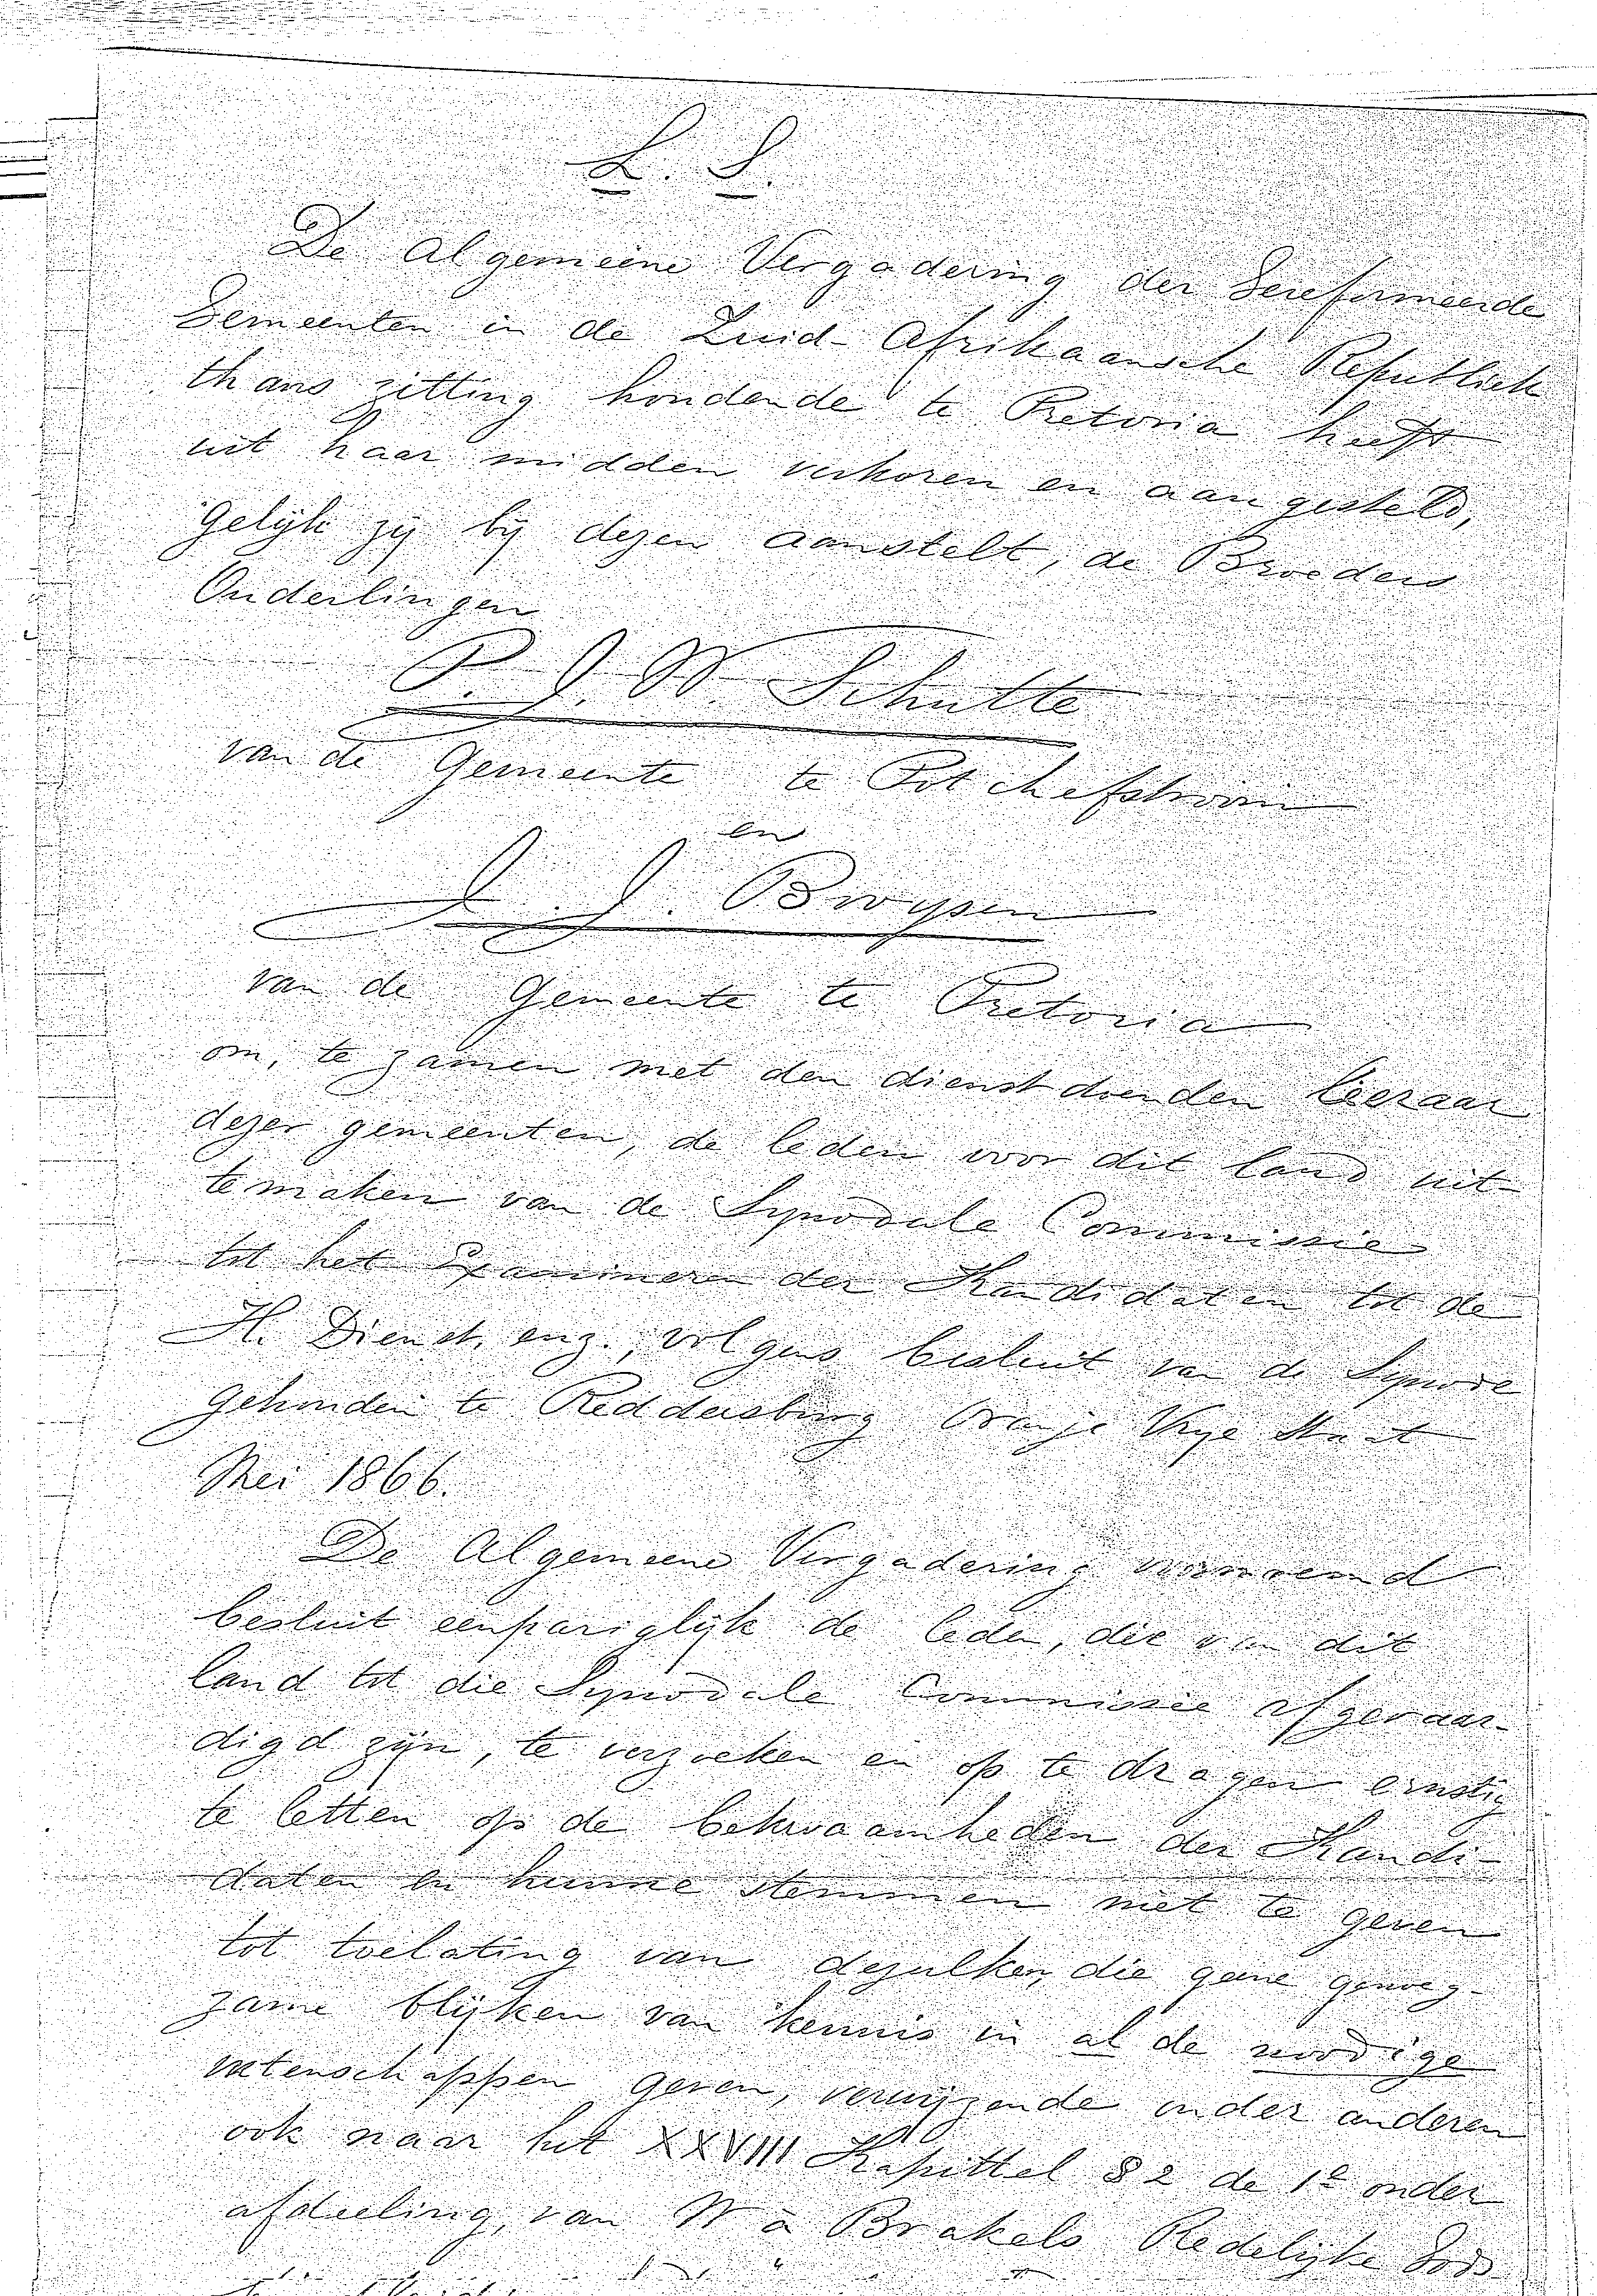 L. S.
De Algemeene Vergadering der Gereformeerde
Gemeenten in de Zuid-Afrikaansche Republiek
thans zitting houdende te Pretoria heeft
uit haar midden verkoren en aangesteld,
Gelijk zij bij dezen aanstelt, de Broeders
Ouderlingen
P. J. W. Schutte
van de Gemeente te Potchefstroom
en
J. J. Bruysen
van de Gemeente te Pretoria
om, te zamen met den dienstdoenden Leeraar
dezer gemeenten, de leden voor dit land uit
te maken van de Synodale Commissie
tot het Examineren der Kandidaten tot de
H. Dienst, enz., volgens besluit van de Synode
gehouden te Reddersburg Oranje Vrije Staat
Mei 1866.
De Algemeene Vergadering voornoemd
besluit eenpariglijk de leden, die van dit
land tot die Synodale Commissie afgevaar-
digd zijn, te verzoeken en op te dragen ernstig
te letten op de bekwaamheden der Kandi-
daten en hunne stemmen niet te geven
tot toelating van dezulken, die geene genoeg-
zame blijken van kennis in al de noodige
wetenschappen geven, verwijzende onder anderen
ook naar het XXVIII Kapittel § 2 de 1e onder
afdeeling, van W à Brakels Redelijke Gods